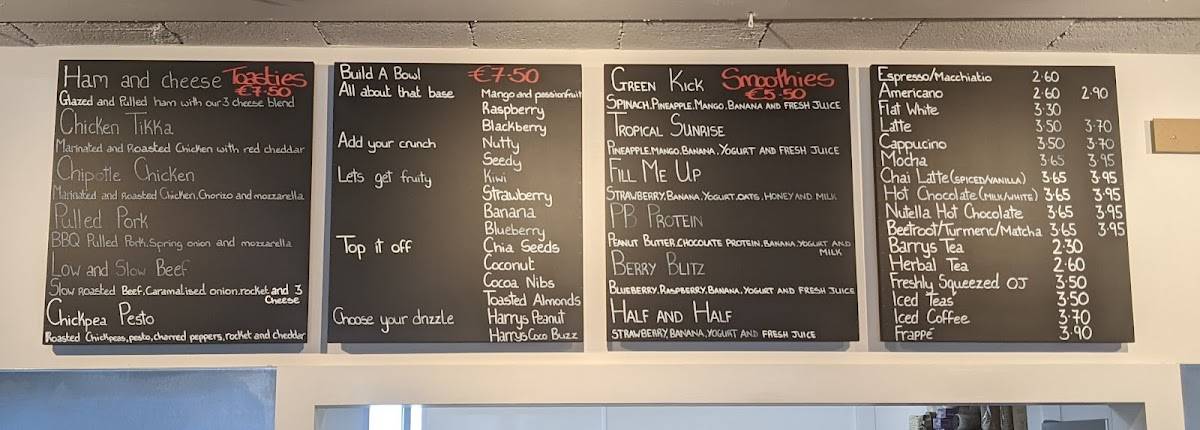 Ham and cheese Toasties
€7.50
Glazed and Pulled ham with our 3 cheese blend
Chicken Tikka
Marinated and Roasted Chicken with red cheddar
Chipotle Chicken
Marinated and Roasted Chicken, Chorizo and mozzarella
Pulled Pork
BBQ Pulled Pork, Spring onion and mozzarella
Low and Slow Beef
Slow Roasted Beef, Caramalised onion, rocket and 3
Cheese
Chickpea Pesto
Roasted Chickpeas, pesto, charred peppers, rocket and cheddar
Build A Bowl €7.50
All about that base Mango and passionfruit
Raspberry
Blackberry
Add your crunch Nutty
Seedy
Lets get fruity Kiwi
Strawberry
Banana
Blueberry
Top it off Chia Seeds
Coconut
Cocoa Nibs
Toasted Almonds
Choose your drizzle Harrys Peanut
Harrys Coco Buzz
Green Kick Smoothies
€5.50
Spinach, Pineapple, Mango, Banana and fresh juice
Tropical Sunrise
Pineapple, Mango, Banana, Yogurt and fresh juice
Fill Me Up
Strawberry, Banana, Yogurt, Oats, Honey and Milk
PB Protein
Peanut Butter, Chocolate Protein, Banana, Yogurt and
Milk
Berry Blitz
Blueberry, Raspberry, Banana, Yogurt and fresh juice
Half and Half
Strawberry, Banana, Yogurt and fresh juice
Espresso/Macchiatio 2.60
Americano 2.60 2.90
Flat White 3.30
Latte 3.50 3.70
Cappucino 3.50 3.70
Mocha 3.65 3.95
Chai Latte (Spiced/Vanilla) 3.65 3.95
Hot Chocolate (Milk/White) 3.65 3.95
Nutella Hot Chocolate 3.65 3.95
Beetroot/Turmeric/Matcha 3.65 3.95
Barrys Tea 2.30
Herbal Tea 2.60
Freshly Squeezed OJ 3.50
Iced Teas 3.50
Iced Coffee 3.70
Frappé 3.90